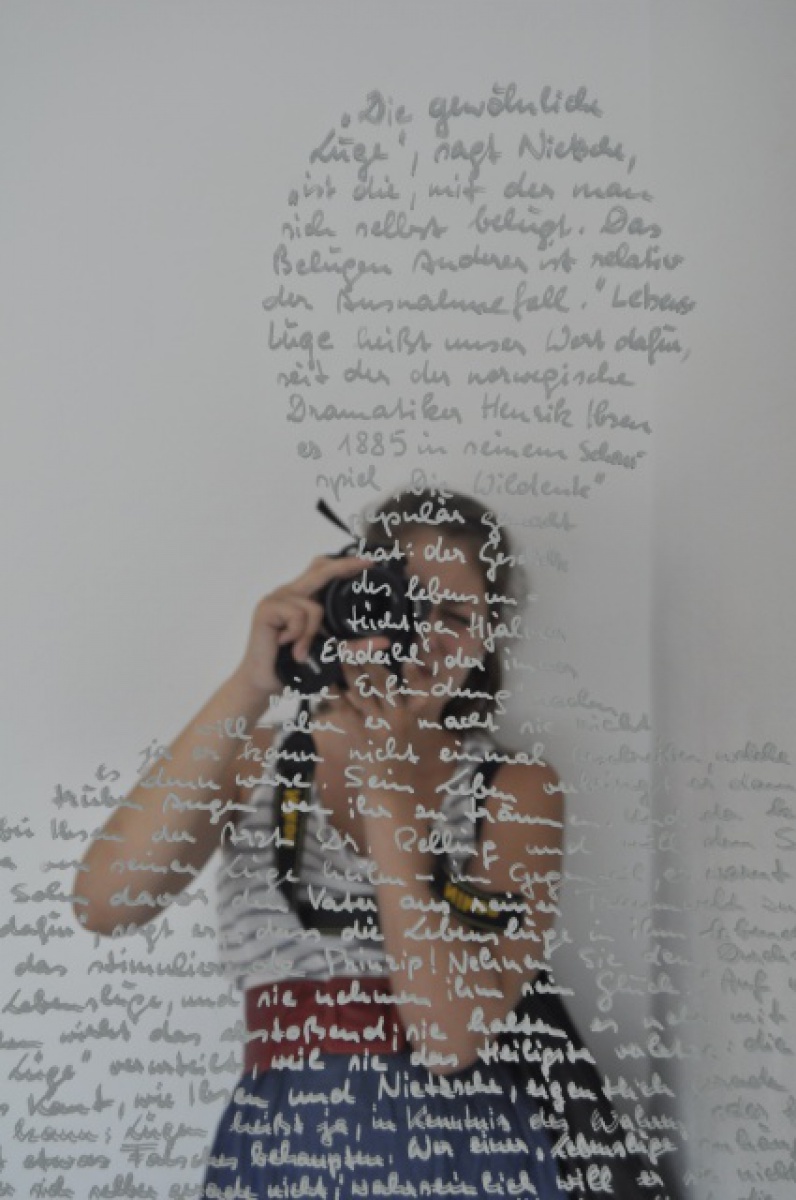 „Die gewöhnliche
Lüge", sagt Nietsche,
„ist die, mit der man
sich selbst belügt. Das
Belügen Anderer ist relativ
der Ausnahmefall." Lebens
lüge heißt unser Wort dafür,
seit der der norwegische
Dramatiker Henrik Ibsen
es 1885 in seinem Schau
spiel „Die Wildente"
populär gemacht
hat: der
des lebensun-
tüchtigen Hjalmar
Ekdahl, der immer
eine Erfindung machen
will aber er macht sie nicht
ja er kann nicht einmal beschreiben, welche
es denn wäre. Sein Leben er dann
trüben Augen von ihr zu träumen, und
bei Ibsen der Arzt Dr. Relling und will dem
von seiner Lüge heilen – im Gegenteil, er warnt
Sohn davor den Vater aus seiner Traumwelt zu
dafür", sagt er, dass die Lebenslüge in ihm
das stimulierende Prinzip! Nehmen Sie dem
Lebenslüge, und sie nehmen ihm sein Glück." Auf
wirkt das abstoßend; sie halten es mit
Lüge" verurteilt, weil sie das Heiligste die
Kant, wie Ibsen und Nietzsche, eigentlich
kann: Lügen heißt ja, in Kenntnis des Wahren
etwas Falsches behaupten. Wer einer „Lebenslüge"
sich selber gerade nicht; wahrscheinlich will er nicht